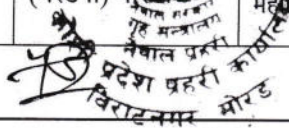 नेपाल सरकार
गृह मन्त्रालय
नेपाल प्रहरी
प्रदेश प्रहरी कार्यालय
विराटनगर मोरङ